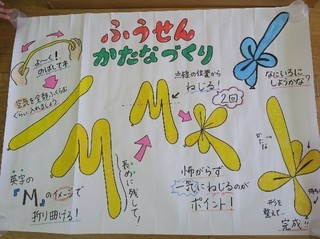 ふうせん
かたなづくり
よ〜く!
のばしてネ
空気を全部ふくらむ
ぐらい入れましょう
英字の
『M』のイメージで
折り曲げる!
長めに残して!
点線の位置から
ねじる
2回
怖がらず
一気にねじるのが
ポイント!
なにいろに
しようかな?
かたち
を整えて…
完成!!